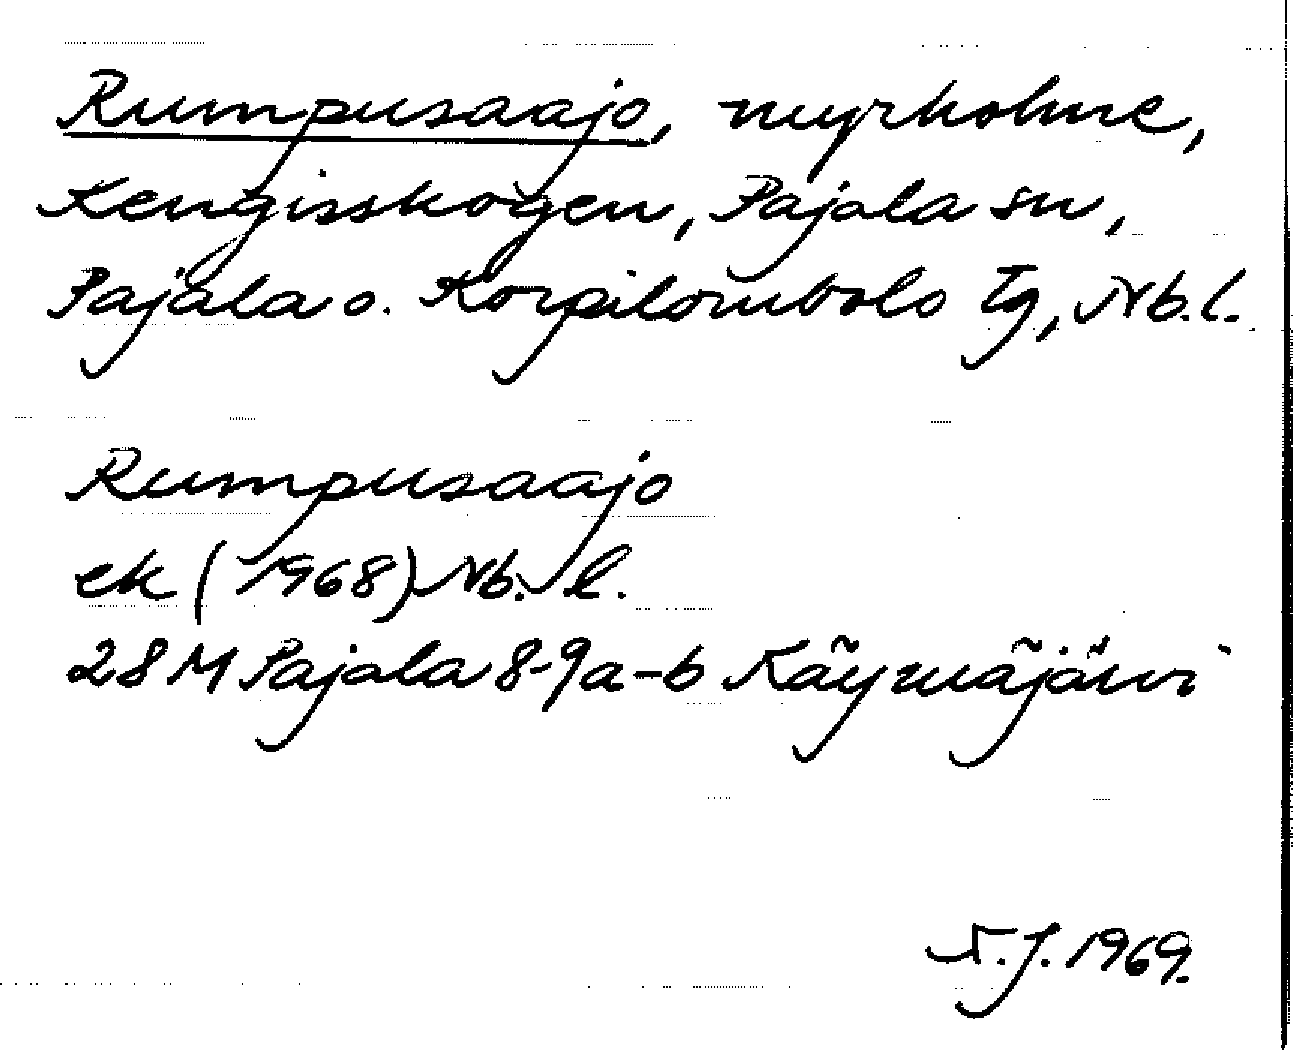 Rumpusaajo, myrholme,
Kengisskogen, Pajala sn,
Pajala o. Korpilombolo tg, Nb.l.
Rumpusaajo
ek (1968) Nb. l.
28 M Pajala 8-9a-b Käymäjärvi
N.J. 1969.